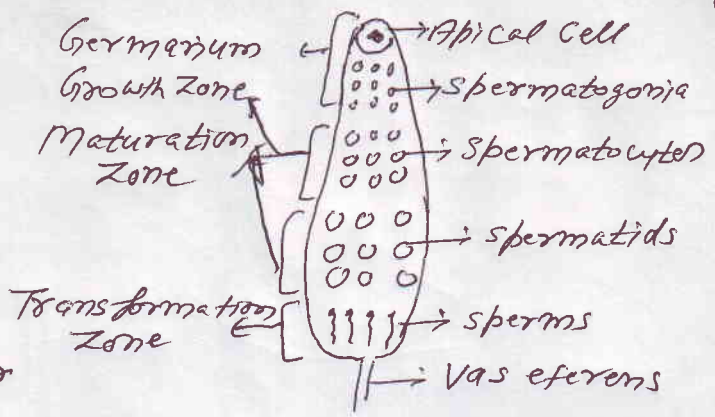 Germarium
Growth Zone
Maturation
Zone
Transformation
Zone
Apical Cell
Spermatogonia
Spermatocytes
Spermatids
Sperms
Vas eferens